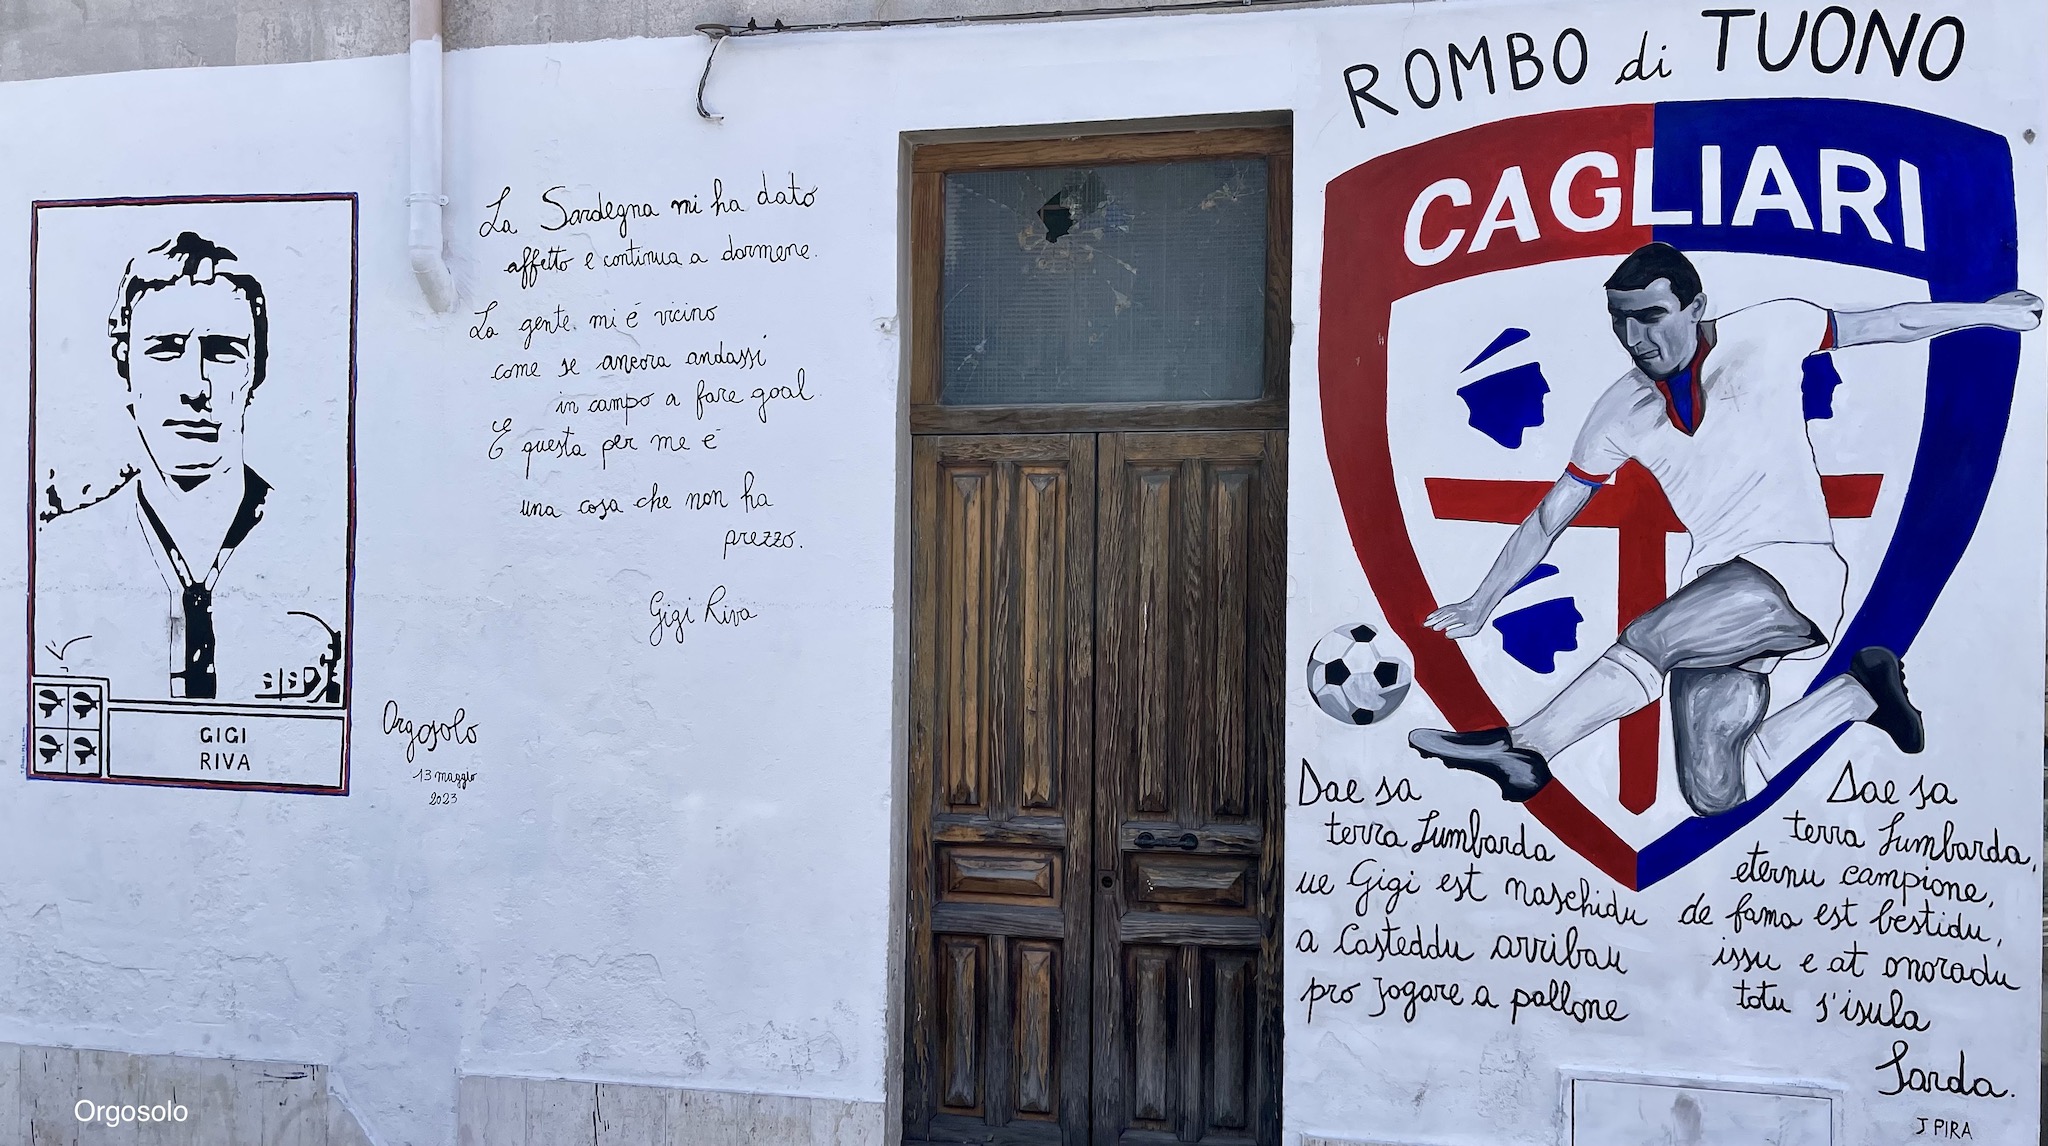 GIGI
RIVA
La Sardegna mi ha dato
affetto e continua a darmene.
La gente mi è vicino
come se ancora andassi
in campo a fare goal
E questa per me è
una cosa che non ha
prezzo.
Gigi Riva
Orgosolo
13 maggio
2023
ROMBO di TUONO
CAGLIARI
Dae sa
terra Lumbarda
ue Gigi est naschidu
a Casteddu arribau
pro jogare a pallone
Dae sa
terra Lumbarda,
eternu campione,
de fama est bestidu,
issu e at onoradu
totu s'isula
Sarda.
J PIRA
Orgosolo